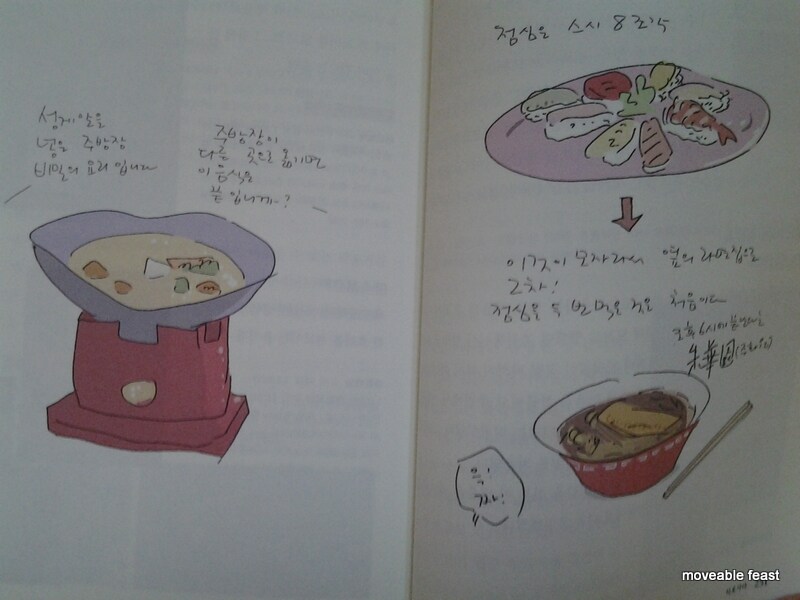 성게알을
넣은 주방장
비밀의 요리입니다
주방장이
다른 곳으로 옮기면
이 음식은
끝입니까?
점심은 스시 8조각
이것이 모자라서 옆의 라면집으로
2차!
점심을 두 번 먹은 것은 처음이다
오후 6시에 문 여는
윽!
짜!
moveable feast